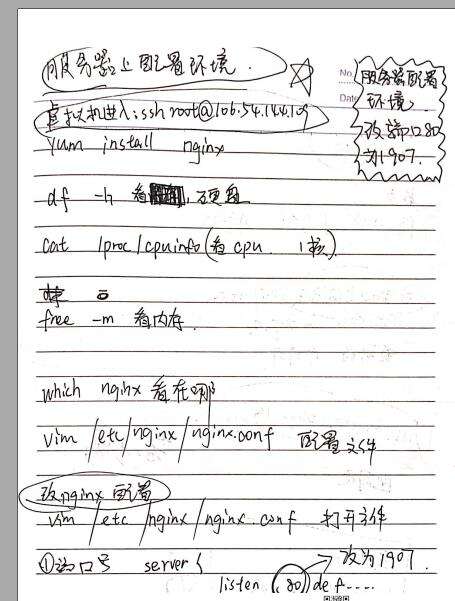 服务器上配置环境.
No.
Date
服务器配置
环境.
改端口80
为1907.
虚拟机进入:ssh root@106.54.144.109
yum install nginx
df -h 看 硬盘
cat /proc/cpuinfo(看cpu 1核)
free -m 看内存.
which nginx 看在哪
vim /etc/nginx/nginx.conf 配置文件
改nginx配置
vim /etc/nginx/nginx.conf 打开文件
①端口号 server { 改为1907.
listen (80) def....